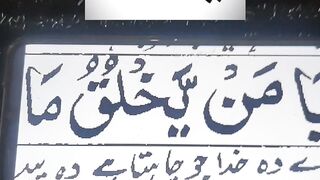 يَا مَنْ يَّخْلُقُ مَا
اے وہ خدا جو چاہتا ہے وہ پید